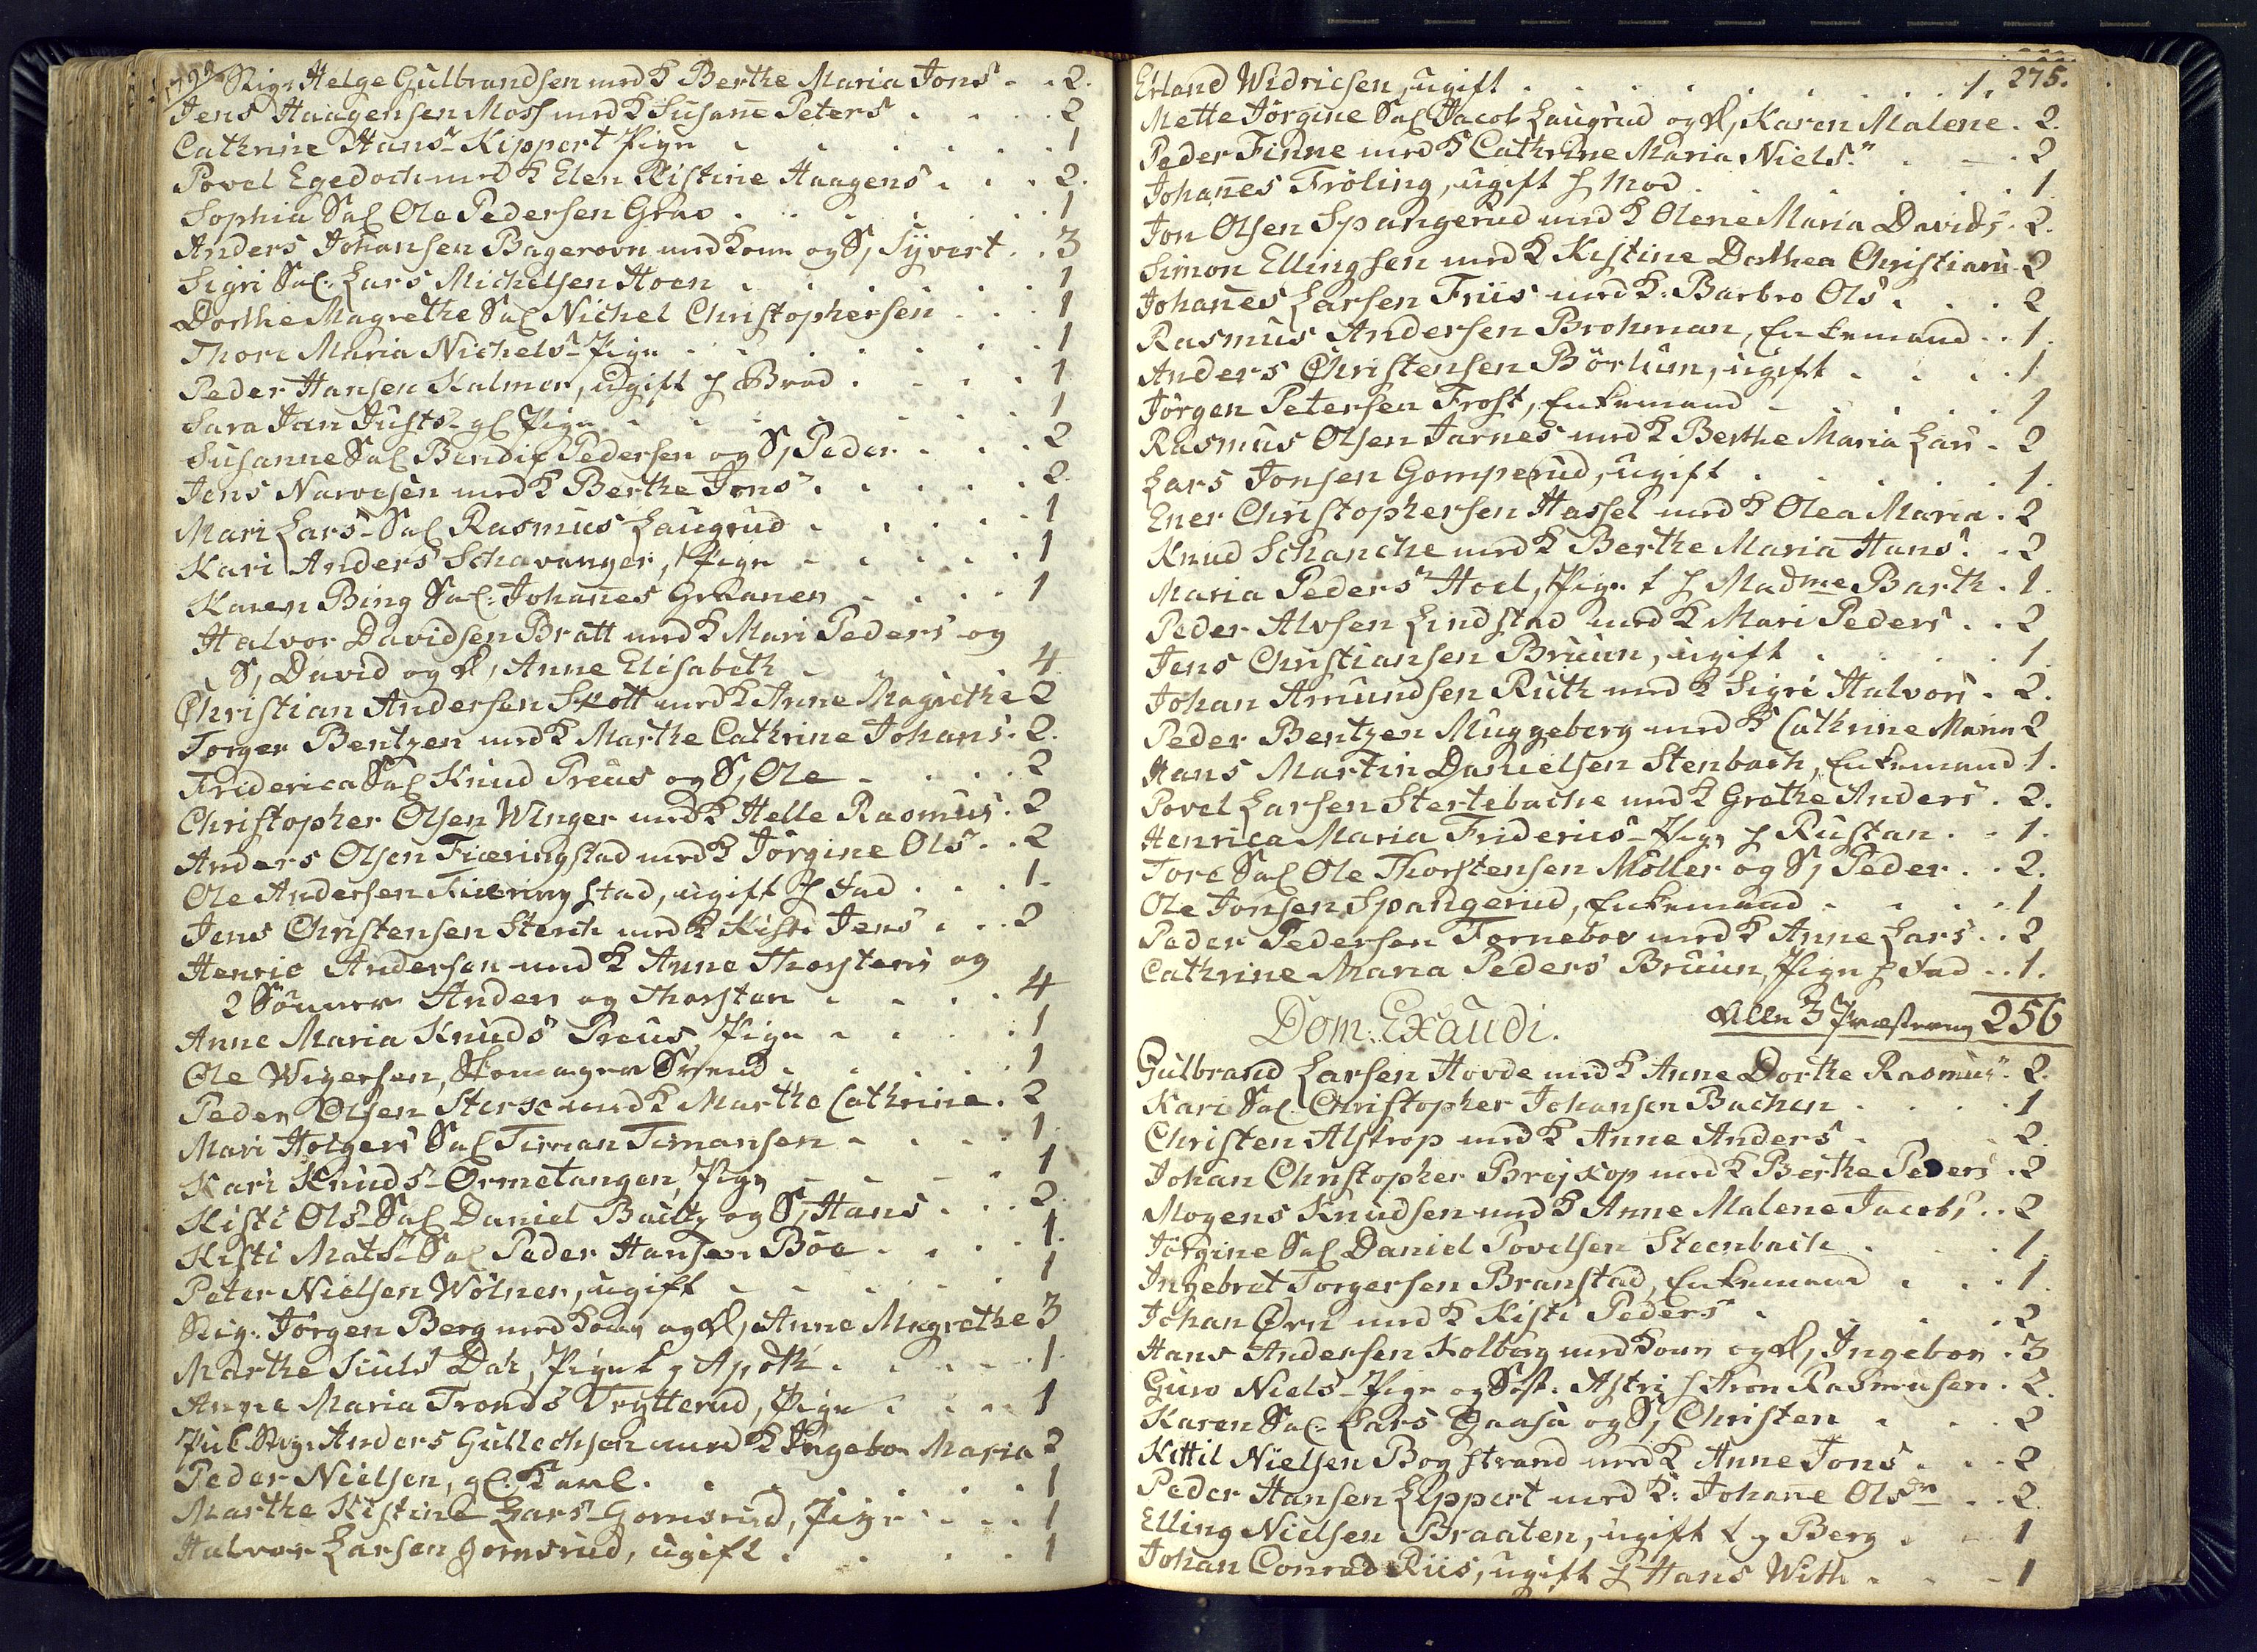 Sigr Helge Gulbrandsen med K Berthe Maria Jons . . 2.
Jens Haagensen Moss med K Susane Peters . . . 2
Cathrine Hans Kippert Pige . . . . 1
Povel Egedoch med K Elen Kistine Haagens . . . 2.
Sophia Sal Ole Pedersen Grav . . . . 1
Anders Johansen Bagerovn med Kone og S, Syvert . . 3
Sigri Sal: Lars Michelsen Hoen . . . . 1
Dorthe Magrethe Sal Nichel Christophersen . . . 1
Thore Maria Nichels Pige . . . . 1
Peder Hansen Kalmer, ugift h Brod . . . . 1
Sara Jan Justs gl Pige . . . . 1
Susanne Sal Bendix Pedersen og S, Peder . . . 2
Jens Narvesen med K Berthe Jons . . . . 2.
Mari Lars Sal Rasmus Laugrud . . . . 1
Kari Anders Schavanger, Pige . . . . 1
Karen Bing Sal: Johanes Graanen . . . . 1
Halvor Davidsen Bratt med K Mari Peders og
S, David og D, Anne Elisabeth . . . 4
Christian Andersen Skott med K Anne Magrethe 2
Torger Bentzen med K Marthe Cathrine Johans . 2.
Friderica Sal Knud Preus og S, Ole . . . . 2
Christopher Olsen Winger med K Helle Rasmus . 2
Anders Olsen Fiæringstad med K Jörgine Ols . . 2
Ole Andersen Fiæringstad, ugift h Fad . . . 1.
Jens Christensen Stench med K Kisti Jens . . . 2
Henric Andersen med K Anne Thorstens og
2 Sönner Anders og Thorsten . . . . 4
Anne Maria Knuds Preus, Pige . . . . 1
Ole Wigersen, Skomager Svend . . . . 1
Peder Olsen Sterse med K Marthe Cathrine . 2
Mari Holgers Sal Timan Timansen . . . . 1
Kari Knuds Ormetangen, Pige . . . . 1
Kisti Ols Sal Daniel Bautz og S, Hans . . . 2.
Kisti Mats Sal Peder Hansen Böe . . . . 1.
Peter Nielsen Wölner, ugift . . . . 1
Sigr. Jörgen Berg med Kone og D, Anne Magrethe 3
Marthe Siuls Dar, Pige t h Apoth . . . . 1
Anne Maria Tronds Trytterud, Pige . . . . 1
Sigr Anders Gullechsen med K Ingebor Maria 2
Peder Nielsen, gl: Karl . . . . 1
Marthe Kistine Lars Gomsrud, Pige . . . . 1
Halvor Larsen Gomsrud, ugift . . . . 1
275.
Erland Widricsen, ugift . . . . 1.
Mette Jörgine Sal Jacob Laugrud og D, Karen Malene . 2.
Peder Finne med K Cathrine Maria Niels . . . 2
Johanes Fröling, ugift h Mod . . . . 1.
Jon Olsen Spangerud med K Olene Maria Davids . 2.
Simon Ellingsen med K Kistine Dorthea Christians . 2
Johanes Larsen Friis med K: Barbro Ols . . . 2
Rasmus Andersen Brohman, Enkemand . . 1.
Anders Christensen Börlum, ugift . . . . 1
Jörgen Petersen Frost, Enkemand . . . . 1
Rasmus Olsen Jarnes med K Berthe Maria Lars . 2
Lars Jonsen Gomperud, ugift . . . . 1.
Ener Christophersen Hassel med K Olea Maria . 2
Knud Schanche med K Berthe Maria Hans . . 2
Maria Peders Hoel, Pige t h Madme Barth . 1.
Peder Alvsen Lindstad med K Mari Peders . . 2
Jens Christiansen Bruun, ugift . . . . 1.
Johan Amundsen Ruth med K Sigri Halvors . 2.
Peder Bentzen Muggeberg med K Cathrine Maria 2
Hans Martin Danielsen Stenbach, Enkemand 1.
Povel Larsen Stertebache med K Grethe Anders . 2.
Henrica Maria Friderics Pige h Rustan . . 1.
Tore Sal Ole Thorstensen Möller og S, Peder . . 2.
Ole Jonsen Spangerud, Enkemand . . . . 1
Peder Pedersen Fornebos med K Anne Lars . . 2
Cathrine Maria Peders Bruun, Pige h Fad . . 1.
Dom: Exaudi. 256
Gulbrand Larsen Hovde med K Anne Dorthe Rasmus . 2.
Kari Sal Christopher Johansen Bachen . . . . 1
Christen Alstrop med K Anne Anders . . . . 2.
Johan Christopher Brejskop med K Berthe Peders . 2
Mogens Knudsen med K Anne Malene Jacobs . . 2
Jörgine Sal Daniel Povelsen Steenbach . . . 1.
Ingebret Torgersen Branstad, Enkemand . . . 1.
Johan Örn med K Kisti Peders . . . . 2
Hans Andersen Kolberg med Kone og D, Ingebor . 3
Guro Niels Pige og Søst. Astri h Aron Rasmusen . 2.
Karen Sal: Lars Gaasa og S, Christen . . . 2
Kittil Nielsen Bogstrand med K Anne Jons . . . 2
Peder Hansen Lippert med K: Johane Olsdr . . . 2.
Elling Nielsen Braaten, ugift t h Berg . . . 1
Johan Conrad Riis, ugift h Hans With . . . 1